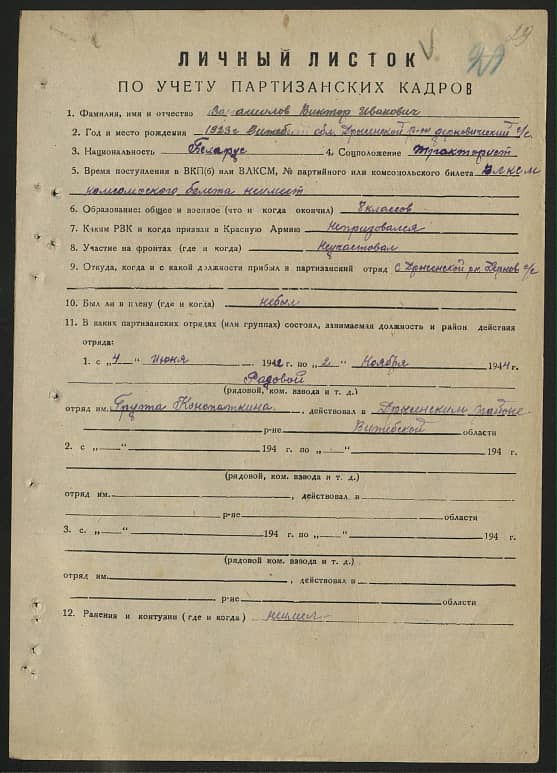 29
ЛИЧНЫЙ ЛИСТОК
ПО УЧЕТУ ПАРТИЗАНСКИХ КАДРОВ
1. Фамилия, имя и отчество Виктор Иванович
2. Год и место рождения 1923 г. обл. Дрысинской р-н с/с
3. Национальность Беларус 4. Соцположение Тракторист
5. Время поступления в ВКП(б) или ВЛКСМ, № партийного или комсомольского билета ВЛКСМ
комсомоского белета неимеет
6. Образование: общее и военное (что и когда окончил) классов
7. Каким РВК и когда призван в Красную Армию непризовался
8. Участие на фронтах (где и когда) Неучаствовал
9. Откуда, когда и с какой должности прибыл в партизанский отряд с Дрысинской с/с
10. Был ли в плену (где и когда) небыл
11. В каких партизанских отрядах (или группах) состоял, занимаемая должность и район действия
отряда:
1. с „4 “ Июня 1942 г. по „2 “ Ноября 1944 г.
Радовой
(рядовой, ком. взвода и т. д.)
отряд им. Група Конопаткина, действовал в Дрысинским районе
р-не Витебской области
2. с „ “ 194 г. по „ “ 194 г.
(рядовой, ком. взвода и т. д.)
отряд им. , действовал в
р-не области
3. с. „ “ 194 г. по „ “ 194 г.
(рядовой ком. взвода и т. д.)
отряд им. , действовал в
р-не области
12. Ранения и контузии (где и когда) неимел